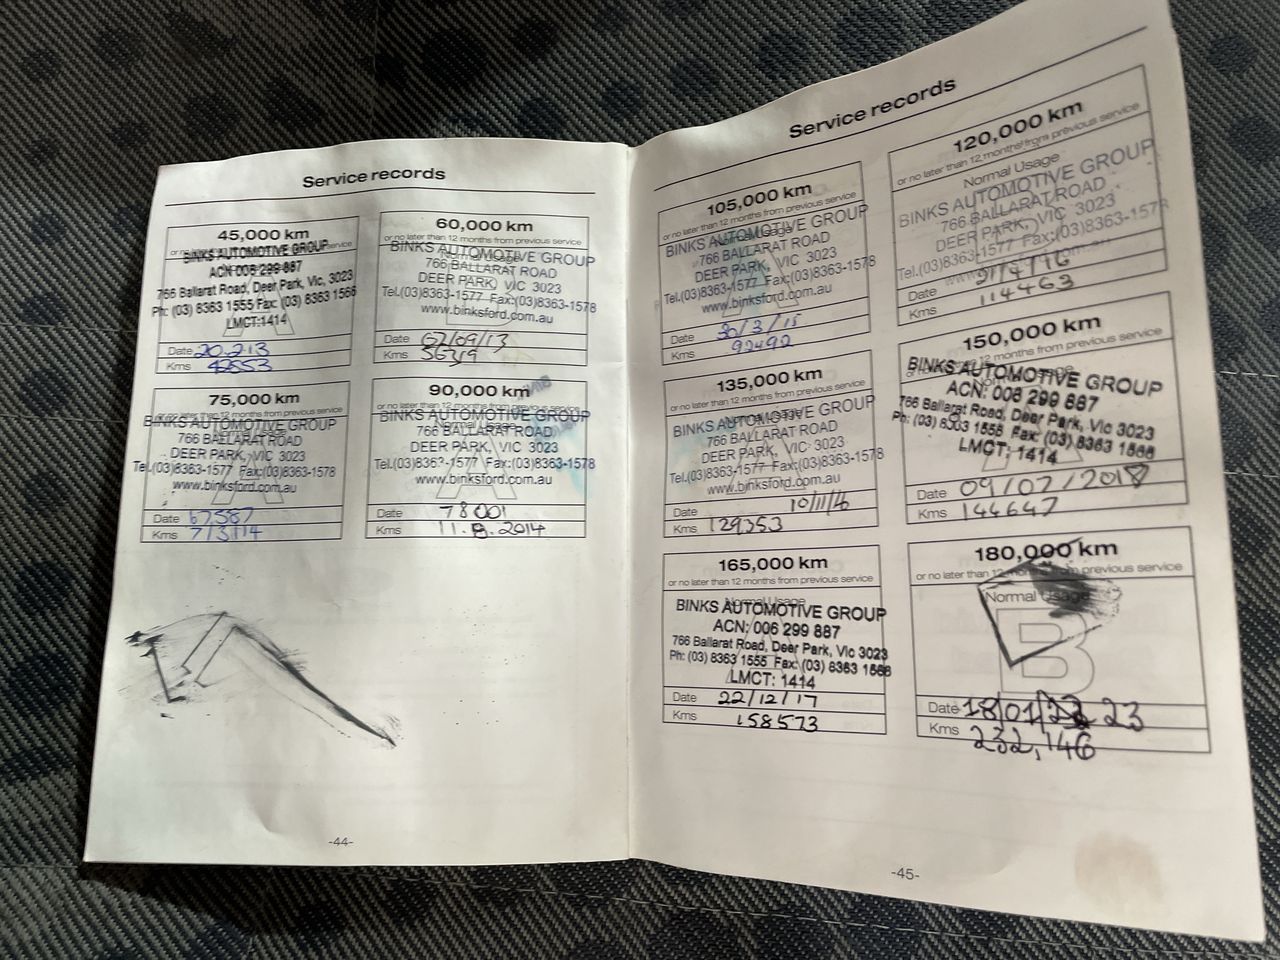 Service records
45,000 km
or no later than 12 months from previous service
BINKS AUTOMOTIVE GROUP
ACN 006 299 887
766 Ballarat Road, Deer Park, Vic, 3023
Ph: (03) 8363 1555 Fax: (03) 8363 1566
LMCT:1414
Date 20.2.13
Kms 42553
60,000 km
or no later than 12 months from previous service
BINKS AUTOMOTIVE GROUP
766 BALLARAT ROAD
DEER PARK, VIC 3023
Tel.(03)8363-1577 Fax:(03)8363-1578
www.binksford.com.au
Date 02/09/13
Kms
75,000 km
or no later than 12 months from previous service
BINKS AUTOMOTIVE GROUP
766 BALLARAT ROAD
DEER PARK, VIC 3023
Tel.(03)8363-1577 Fax:(03)8363-1578
www.binksford.com.au
Date 67587
Kms 7/3/14
90,000 km
or no later than 12 months from previous service
BINKS AUTOMOTIVE GROUP
Normal Usage
766 BALLARAT ROAD
DEER PARK, VIC 3023
Tel.(03)8363-1577 Fax:(03)8363-1578
www.binksford.com.au
A
Date 78001
Kms 11.8.2014
-44-
Service records
105,000 km
or no later than 12 months from previous service
Normal Usage
BINKS AUTOMOTIVE GROUP
766 BALLARAT ROAD
DEER PARK, VIC 3023
Tel.(03)8363-1577 Fax:(03)8363-1578
www.binksford.com.au
A
Date 30/3/15
Kms 92492
120,000 km
or no later than 12 months from previous service
Normal Usage
BINKS AUTOMOTIVE GROUP
766 BALLARAT ROAD
DEER PARK, VIC 3023
Tel.(03)8363-1577 Fax:(03)8363-1578
Date 9/4/16
Kms 114463
135,000 km
or no later than 12 months from previous service
Normal Usage
BINKS AUTOMOTIVE GROUP
766 BALLARAT ROAD
DEER PARK, VIC 3023
Tel.(03)8363-1577 Fax:(03)8363-1578
www.binksford.com.au
Date 10/11/16
Kms 129353
150,000 km
or no later than 12 months from previous service
BINKS AUTOMOTIVE GROUP
ACN: 006 299 887
766 Ballarat Road, Deer Park, Vic 3023
Ph: (03) 8363 1555 Fax: (03) 8363 1566
LMCT: 1414
Date 09/07/2018
Kms 144647
165,000 km
or no later than 12 months from previous service
Normal Usage
BINKS AUTOMOTIVE GROUP
ACN: 006 299 887
766 Ballarat Road, Deer Park, Vic 3023
Ph: (03) 8363 1555 Fax: (03) 8363 1566
LMCT: 1414
Date 22/12/17
Kms 158573
180,000 km
or no later than 12 months from previous service
Normal Usage
B
Date 18/01/23
Kms 232,146
-45-